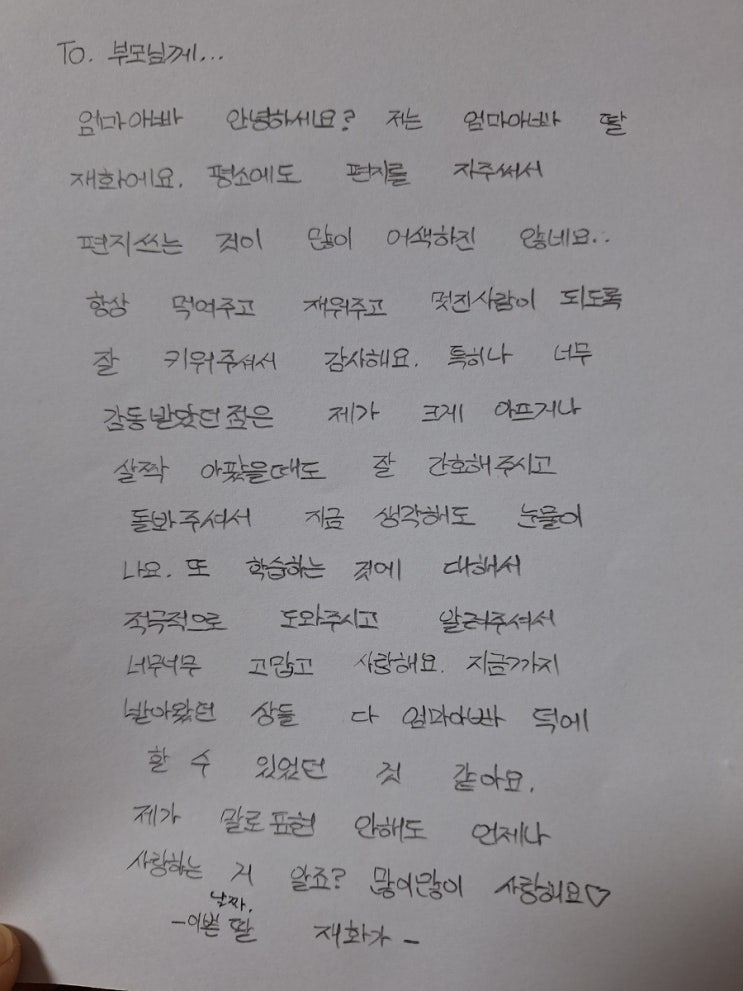 To. 부모님께...
엄마아빠 안녕하세요? 저는 엄마아빠 딸
재화에요. 평소에도 편지를 자주써서
편지쓰는 것이 많이 어색하진 않네요..
항상 먹여주고 재워주고 멋진사람이 되도록
잘 키워주셔서 감사해요. 특히나 너무
감동받았던 점은 제가 크게 아프거나
살짝 아팠을때도 잘 간호해주시고
돌봐주셔서 지금 생각해도 눈물이
나요. 또 학습하는 것에 대해서
적극적으로 도와주시고 알려주셔서
너무너무 고맙고 사랑해요. 지금까지
받아왔던 상들 다 엄마아빠 덕에
할 수 있었던 것 같아요.
제가 말로표현 안해도 언제나
사랑하는 거 알죠? 많이많이 사랑해요♡
날짜.
-이쁜 딸 재화가-